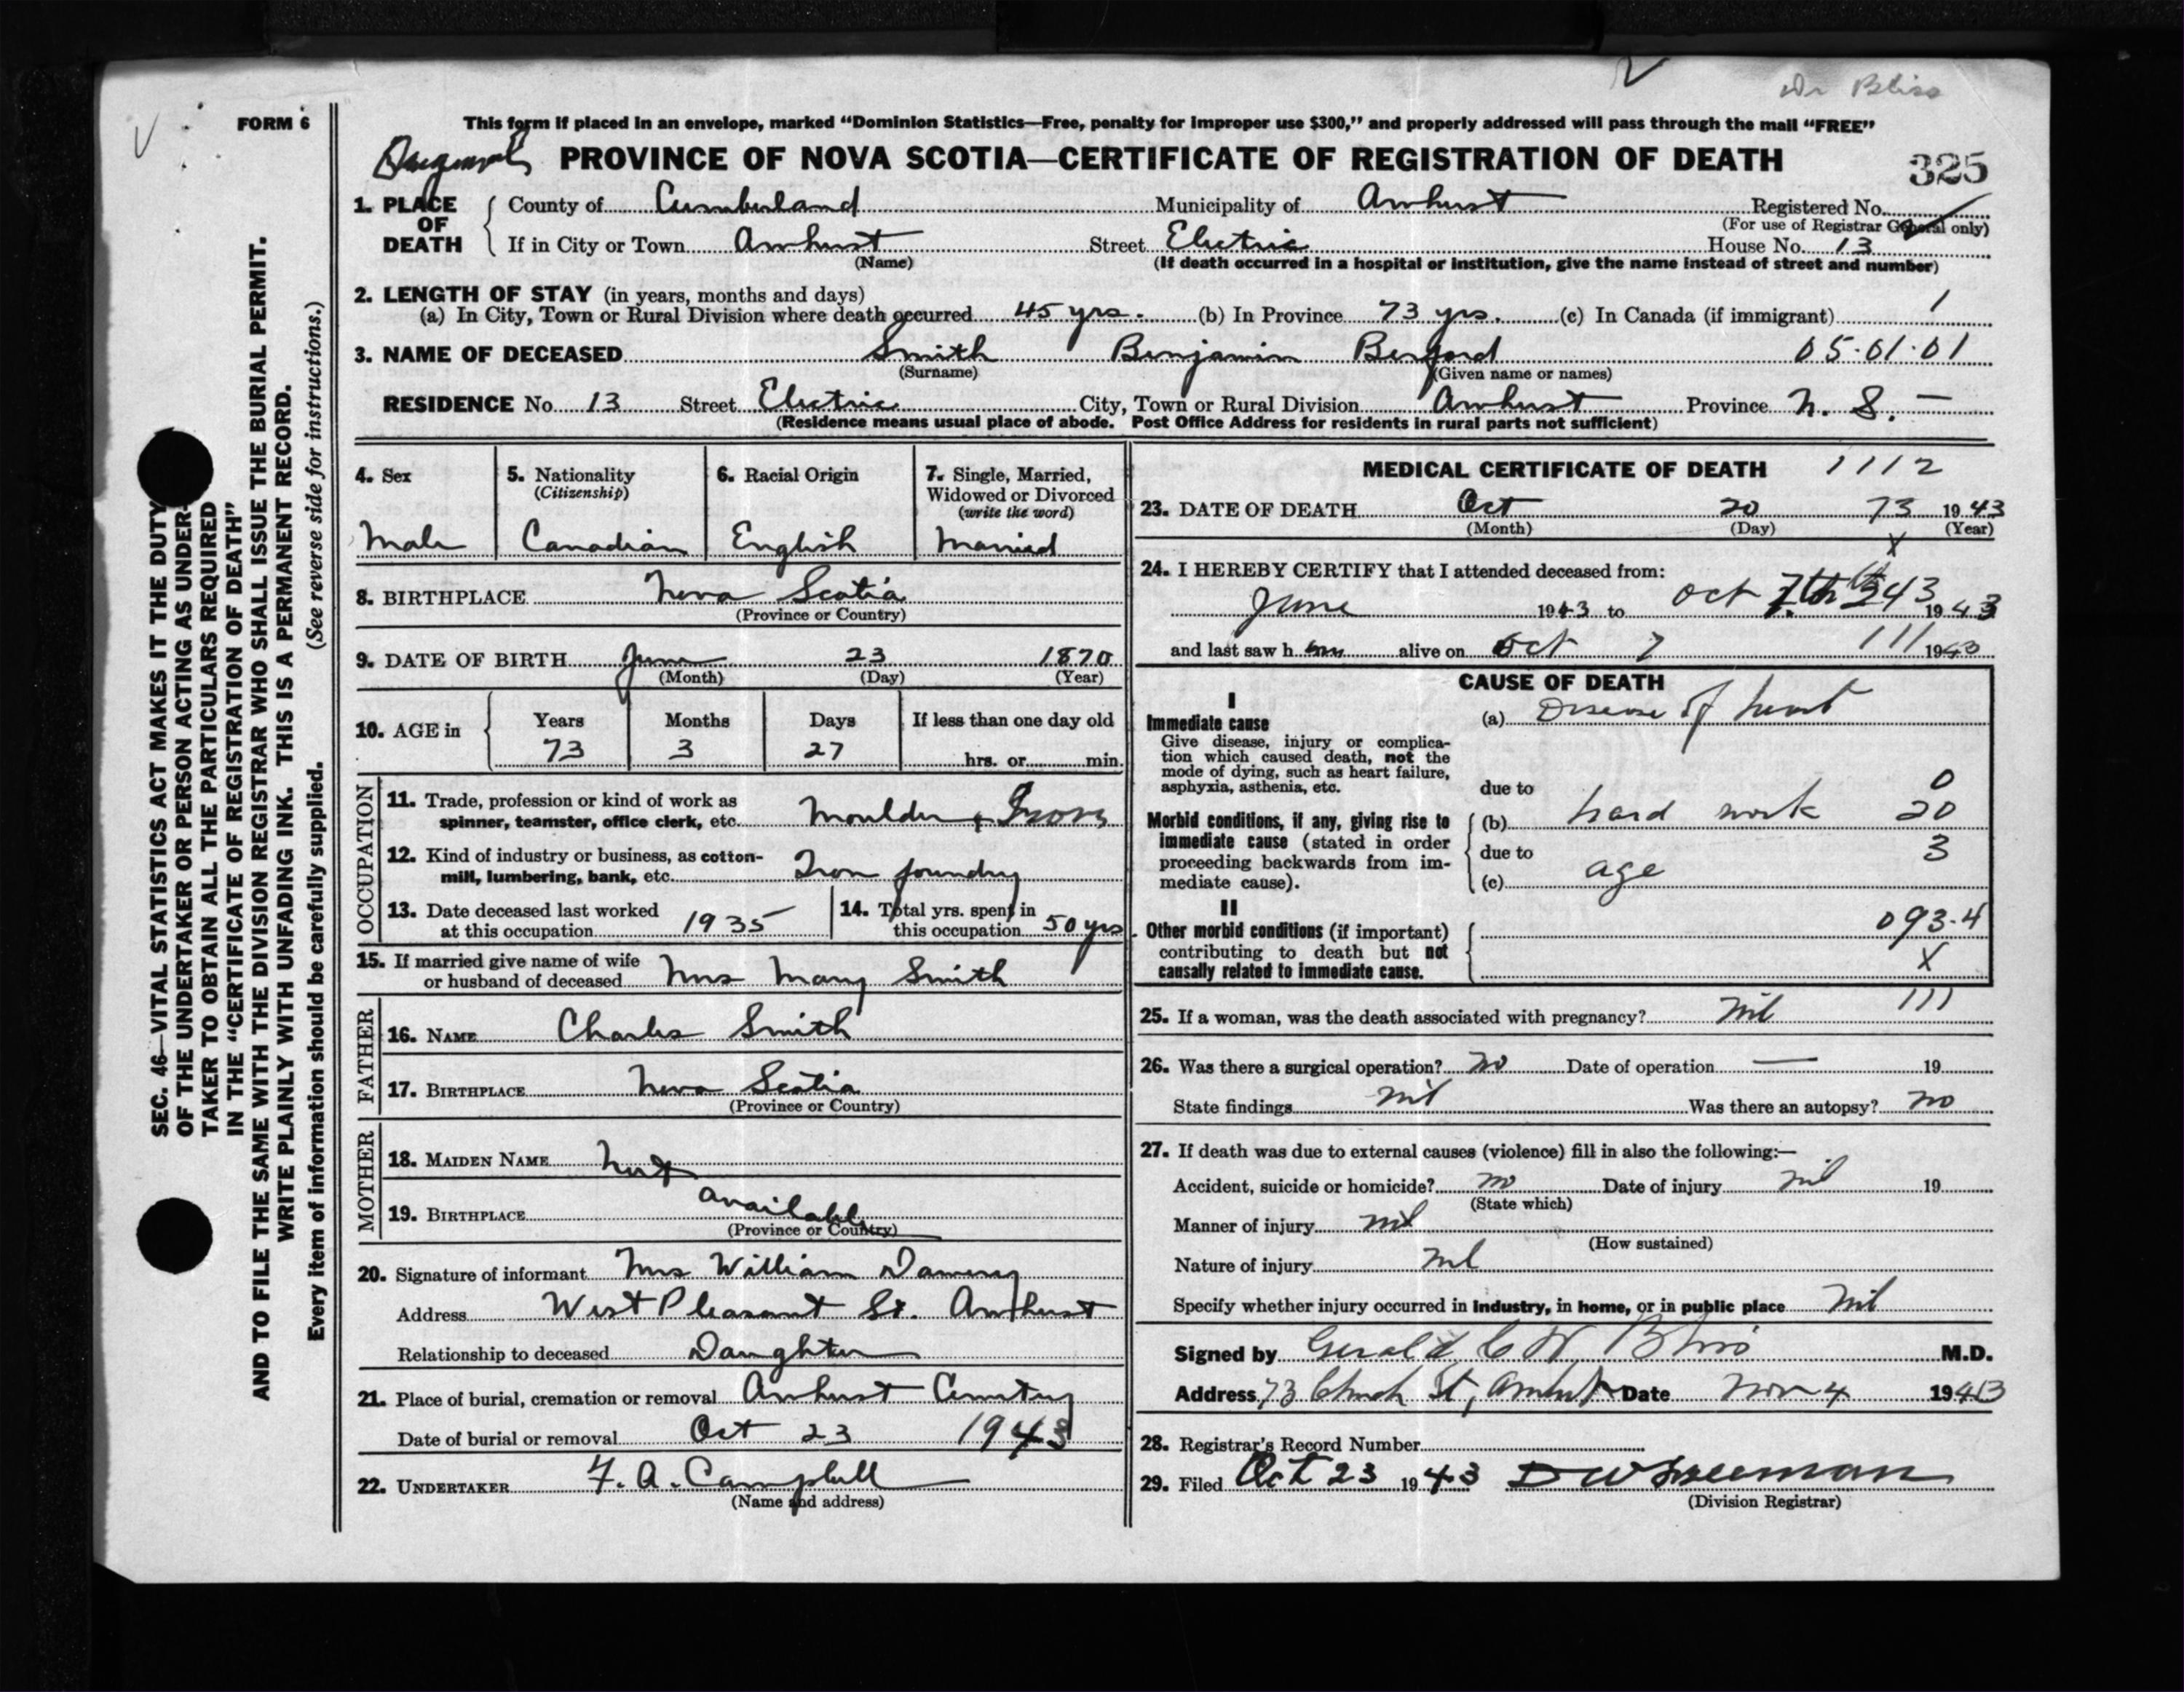 Dr Bliss
FORM 6
This form if placed in an envelope, marked “Dominion Statistics—Free, penalty for improper use $300,” and properly addressed will pass through the mail “FREE”
PROVINCE OF NOVA SCOTIA—CERTIFICATE OF REGISTRATION OF DEATH
325
1. PLACE OF DEATH
County of Cumberland Municipality of Amherst Registered No.
(For use of Registrar General only)
If in City or Town Amherst Street Electric House No. 13
(Name) (If death occurred in a hospital or institution, give the name instead of street and number)
2. LENGTH OF STAY (in years, months and days)
(a) In City, Town or Rural Division where death occurred 45 yrs. (b) In Province 73 yrs. (c) In Canada (if immigrant) 1
3. NAME OF DECEASED Smith Benjamin 05.01.01
(Surname) (Given name or names)
RESIDENCE No. 13 Street Electric City, Town or Rural Division Amherst Province N. S. —
(Residence means usual place of abode. Post Office Address for residents in rural parts not sufficient)
4. Sex
Male
5. Nationality
(Citizenship)
Canadian
6. Racial Origin
English
7. Single, Married,
Widowed or Divorced
(write the word)
Married
8. BIRTHPLACE Nova Scotia
(Province or Country)
9. DATE OF BIRTH June 23 1870
(Month) (Day) (Year)
10. AGE in
Years Months Days If less than one day old
73 3 27 hrs. or min.
OCCUPATION
11. Trade, profession or kind of work as
spinner, teamster, office clerk, etc. Moulder Iron
12. Kind of industry or business, as cotton-
mill, lumbering, bank, etc. Iron foundry
13. Date deceased last worked
at this occupation 1935
14. Total yrs. spent in
this occupation 50 yrs.
15. If married give name of wife
or husband of deceased Mrs Mary Smith
FATHER
16. NAME Charles Smith
17. BIRTHPLACE Nova Scotia
(Province or Country)
MOTHER
18. MAIDEN NAME Not
19. BIRTHPLACE available
(Province or Country)
20. Signature of informant Mrs William
Address West Pleasant St. Amherst
Relationship to deceased Daughter
21. Place of burial, cremation or removal Amherst Cemetery
Date of burial or removal Oct 23 1943
22. UNDERTAKER F. A. Campbell
(Name and address)
MEDICAL CERTIFICATE OF DEATH 1112
23. DATE OF DEATH Oct 20 73 1943
(Month) (Day) (Year)
X
24. I HEREBY CERTIFY that I attended deceased from:
June 1943 to Oct 7th 43 1943
and last saw h im alive on Oct 7 111 1943
CAUSE OF DEATH
I
Immediate cause
Give disease, injury or complica-
tion which caused death, not the
mode of dying, such as heart failure,
asphyxia, asthenia, etc.
(a) Disease of heart
due to 0
Morbid conditions, if any, giving rise to
immediate cause (stated in order
proceeding backwards from im-
mediate cause).
(b) hard work 20
due to 3
(c) age
II
Other morbid conditions (if important)
contributing to death but not
causally related to immediate cause.
093.4
X
111
25. If a woman, was the death associated with pregnancy? Nil
26. Was there a surgical operation? no Date of operation — 19
State findings nil Was there an autopsy? no
27. If death was due to external causes (violence) fill in also the following:—
Accident, suicide or homicide? no Date of injury nil 19
(State which)
Manner of injury nil
(How sustained)
Nature of injury nil
Specify whether injury occurred in industry, in home, or in public place nil
Signed by Gerald C W Bliss M.D.
Address 73 Church St, Amherst Date Nov 4 1943
28. Registrar's Record Number
29. Filed Oct 23 1943
(Division Registrar)
SEC. 46—VITAL STATISTICS ACT MAKES IT THE DUTY
OF THE UNDERTAKER OR PERSON ACTING AS UNDER-
TAKER TO OBTAIN ALL THE PARTICULARS REQUIRED
IN THE “CERTIFICATE OF REGISTRATION OF DEATH”
AND TO FILE THE SAME WITH THE DIVISION REGISTRAR WHO SHALL ISSUE THE BURIAL PERMIT.
WRITE PLAINLY WITH UNFADING INK. THIS IS A PERMANENT RECORD.
Every item of information should be carefully supplied. (See reverse side for instructions.)